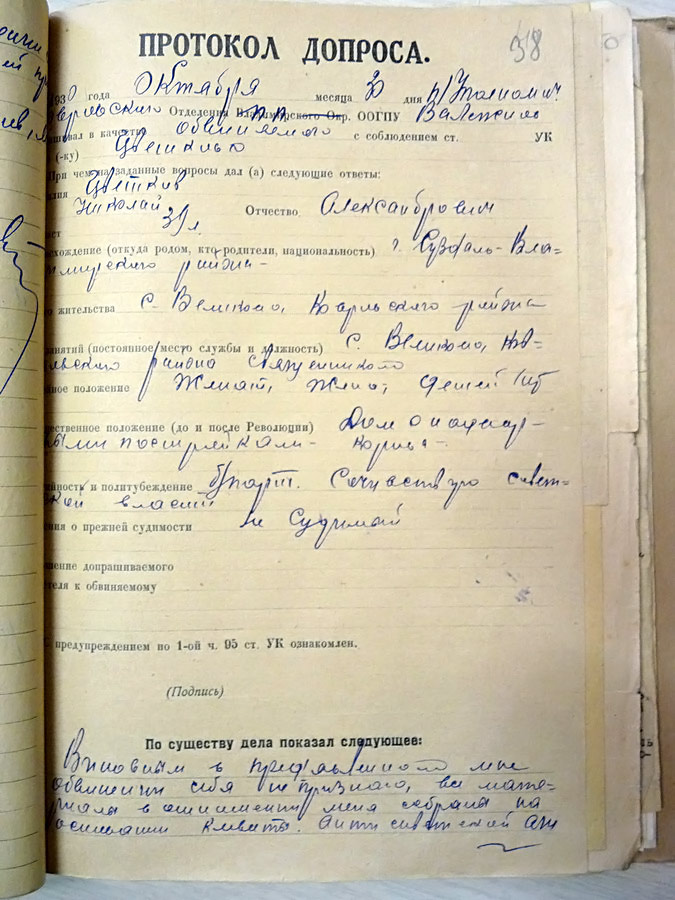 38
ПРОТОКОЛ ДОПРОСА.
1930 года Октября месяца 30 дня п/Уполномоч.
Отделения Владимирского Окр. ПП ООГПУ
в качестве обвиняемого с соблюдением ст. УК
(-ку) Цветкова
При чем на заданные вопросы дал (а) следующие ответы:
Цветков
Николай Отчество Александрович
39 л.
(откуда родом, кто родители, национальность) г. Суздаль- Вла-
димирского района-
жительства с. Великово, района
занятий (постоянное место службы и должность) с. Великово, Ков-
района священником
положение Женат, жена, детей нет
положение (до и после Революции) Дом с надвор-
ными постройками- корова-
и политубеждение б/парт. Сочувствую совет-
ской власти
о прежней судимости не Судимый
допрашиваемого
к обвиняемому
С предупреждением по 1-ой ч. 95 ст. УК ознакомлен.
(Подпись)
По существу дела показал следующее:
Виновным в предъявленном мне
обвинении себя не признаю, все мате-
риалы в отношении меня собраны на
основании клеветы. Антисоветской аги